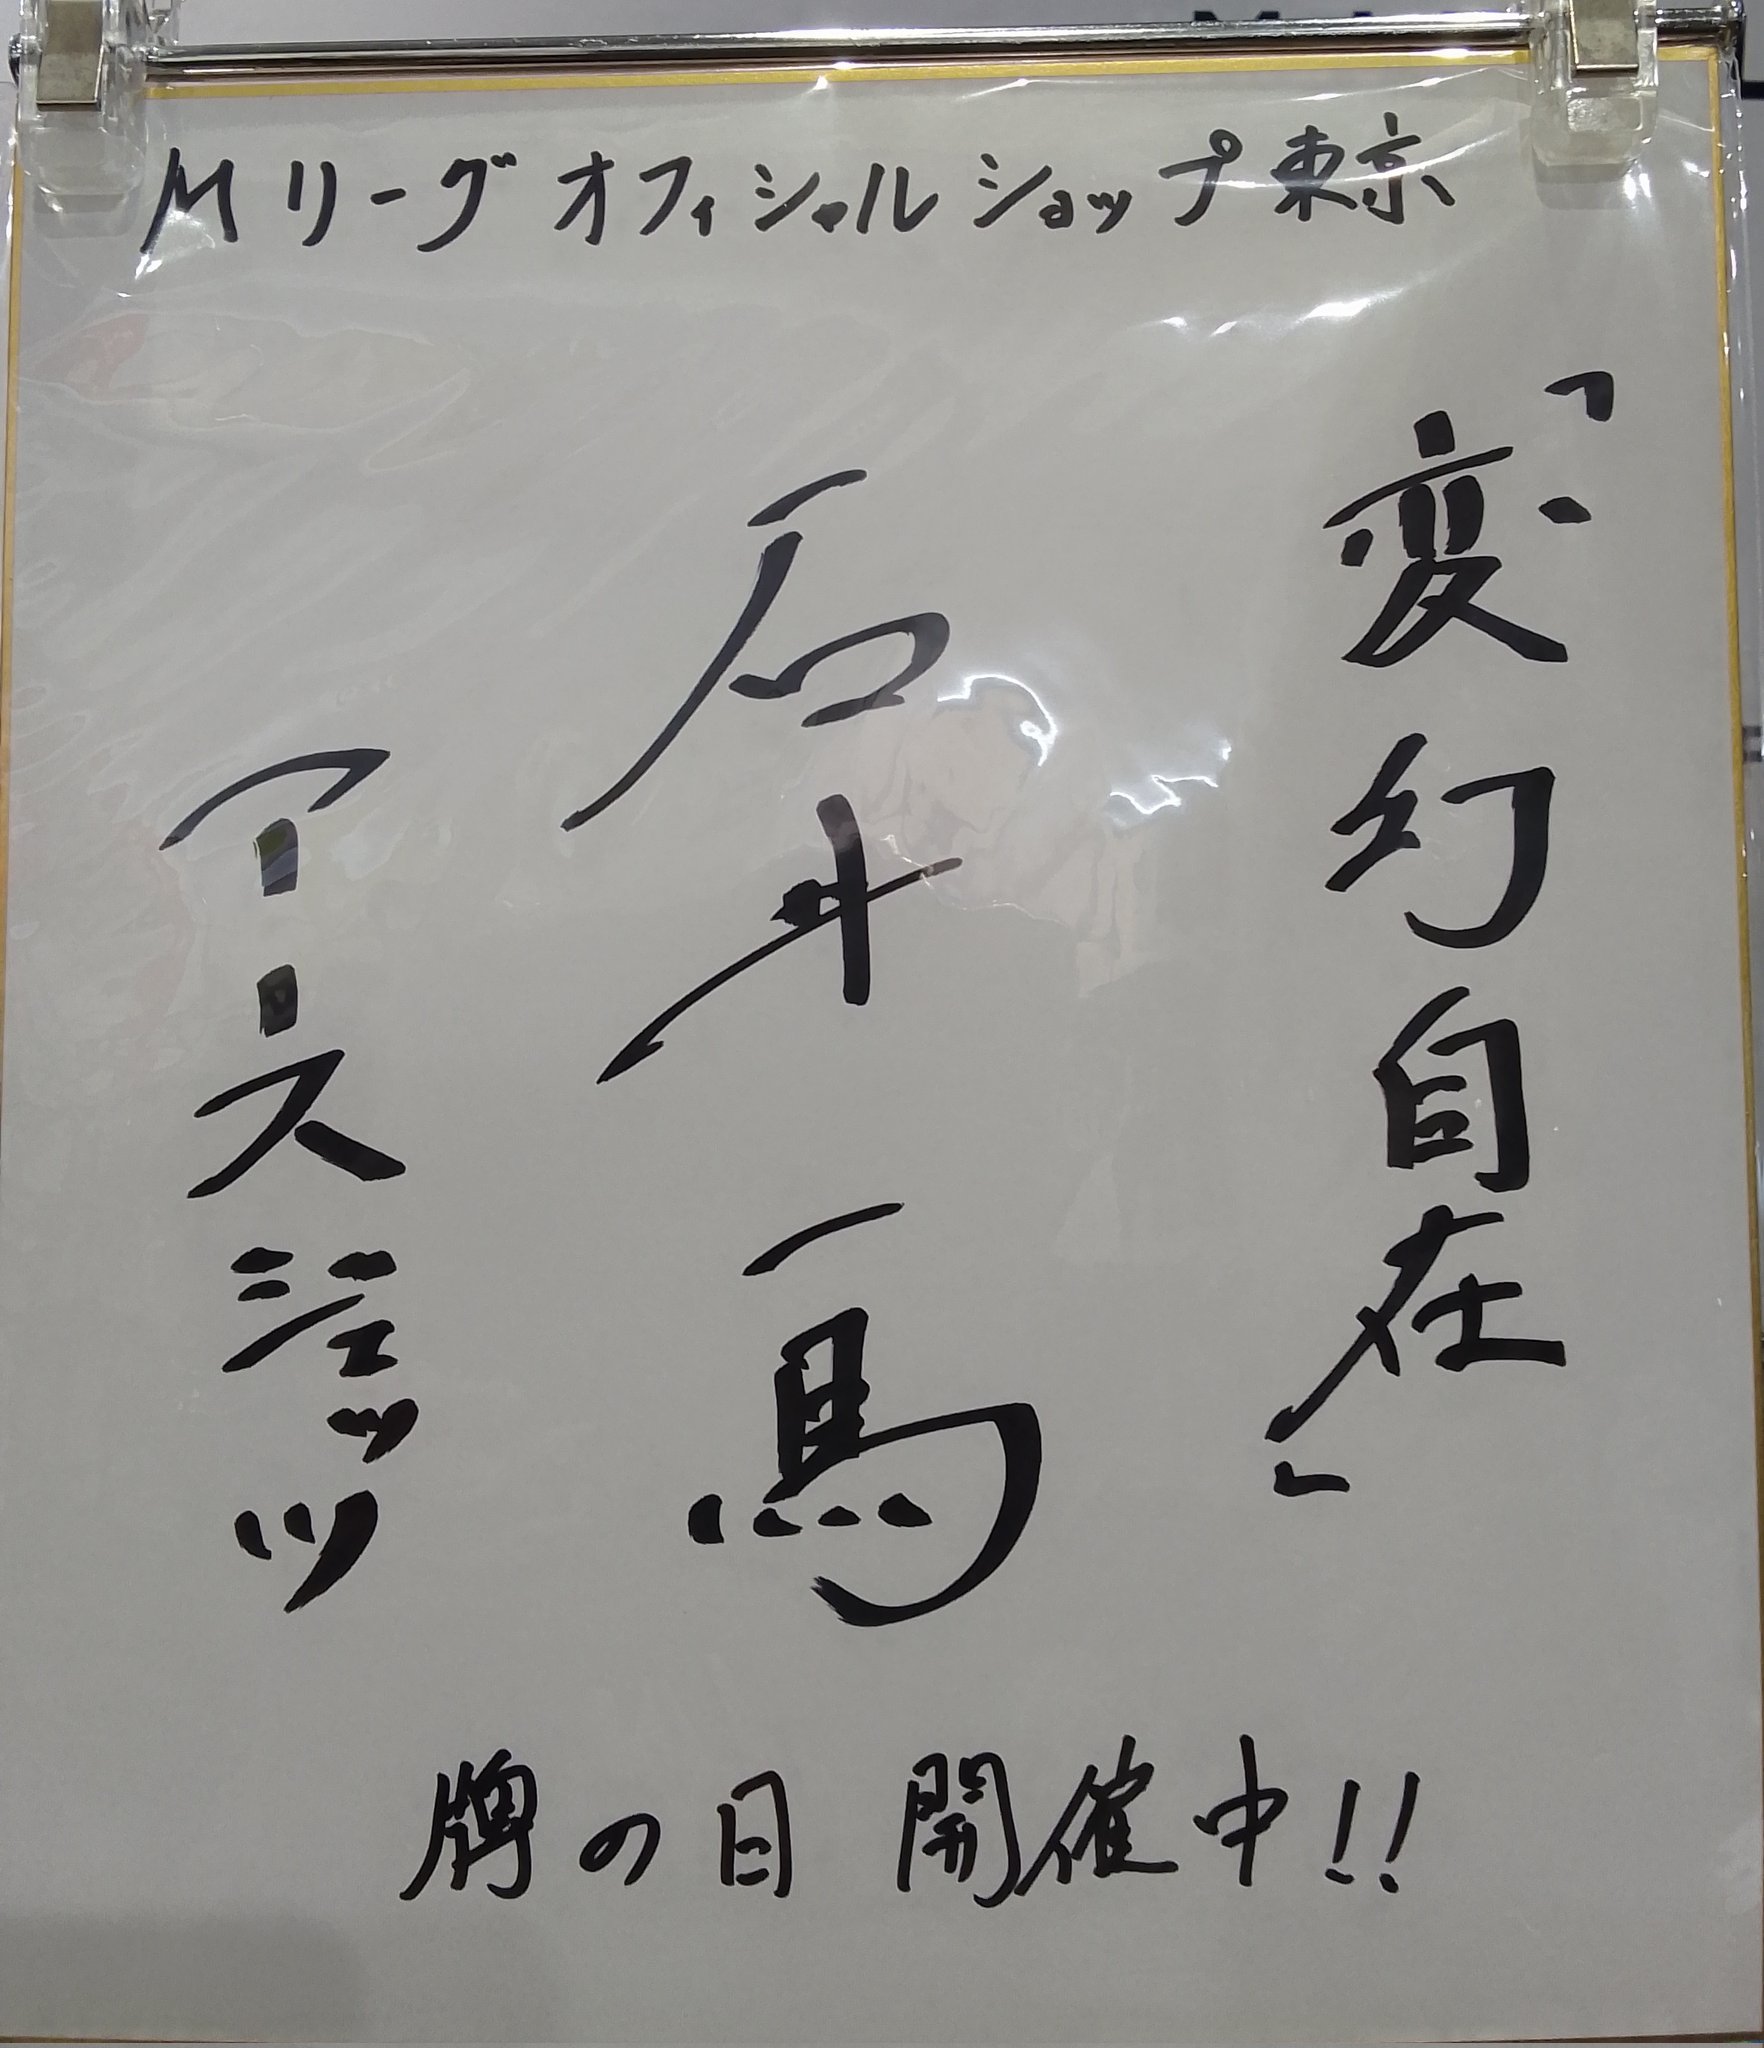 Mリーグオフィシャルショップ東京
「変幻自在」
石井一馬
アースジェッツ
牌の日 開催中!!